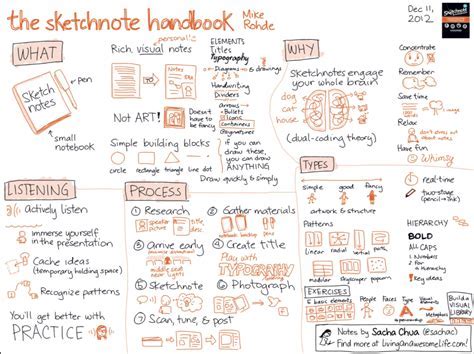 the sketchnote handbook
Mike
Rohde
Dec 11,
2012
WHAT
Sketch
notes
pen
small
notebook
personal
Rich, visual notes
Not ART!
Doesn't
have to
be fancy
Simple building blocks
circle rectangle triangle line dot
ELEMENTS
Titles
Typography
Diagrams & drawings
Handwriting
Dividers
Arrows
Bullets
Icons
Containers
Signatures
if you can
draw these,
you can draw
ANYTHING
Draw quickly & simply
WHY
Sketchnotes engage
your whole brain!
dog
cat
house
(dual-coding theory)
Concentrate
Remember
Save time
Relax
don't
worry
about
notes
Have fun
Whimsy
LISTENING
Actively listen
immerse yourself
in the presentation
Cache ideas
(temporary holding space)
Recognize patterns
You'll get better with
PRACTICE
PROCESS
① Research
speaker
topic
② Gather materials
③ Arrive early
middle seat
④ Create title
Play with
TYPOGRAPHY
⑤ Sketchnotes
⑥ Photograph
⑦ Scan, tune, & post
TYPES
simple
good
fancy
artwork & structure
real-time
two-stage
(pencil→ink)
PATTERNS
linear
radial
vertical
path
modular
skyscraper
popcorn
HIERARCHY
BOLD
ALL CAPS
1. Numbers
2. For
3. Hierarchy
Key ideas
EXERCISES
5 basic elements
People
Faces
Type
Metaphors
Build a
VISUAL
LIBRARY
Notes by Sacha Chua (@sachac)
Find more at livinganawesomelife.com!